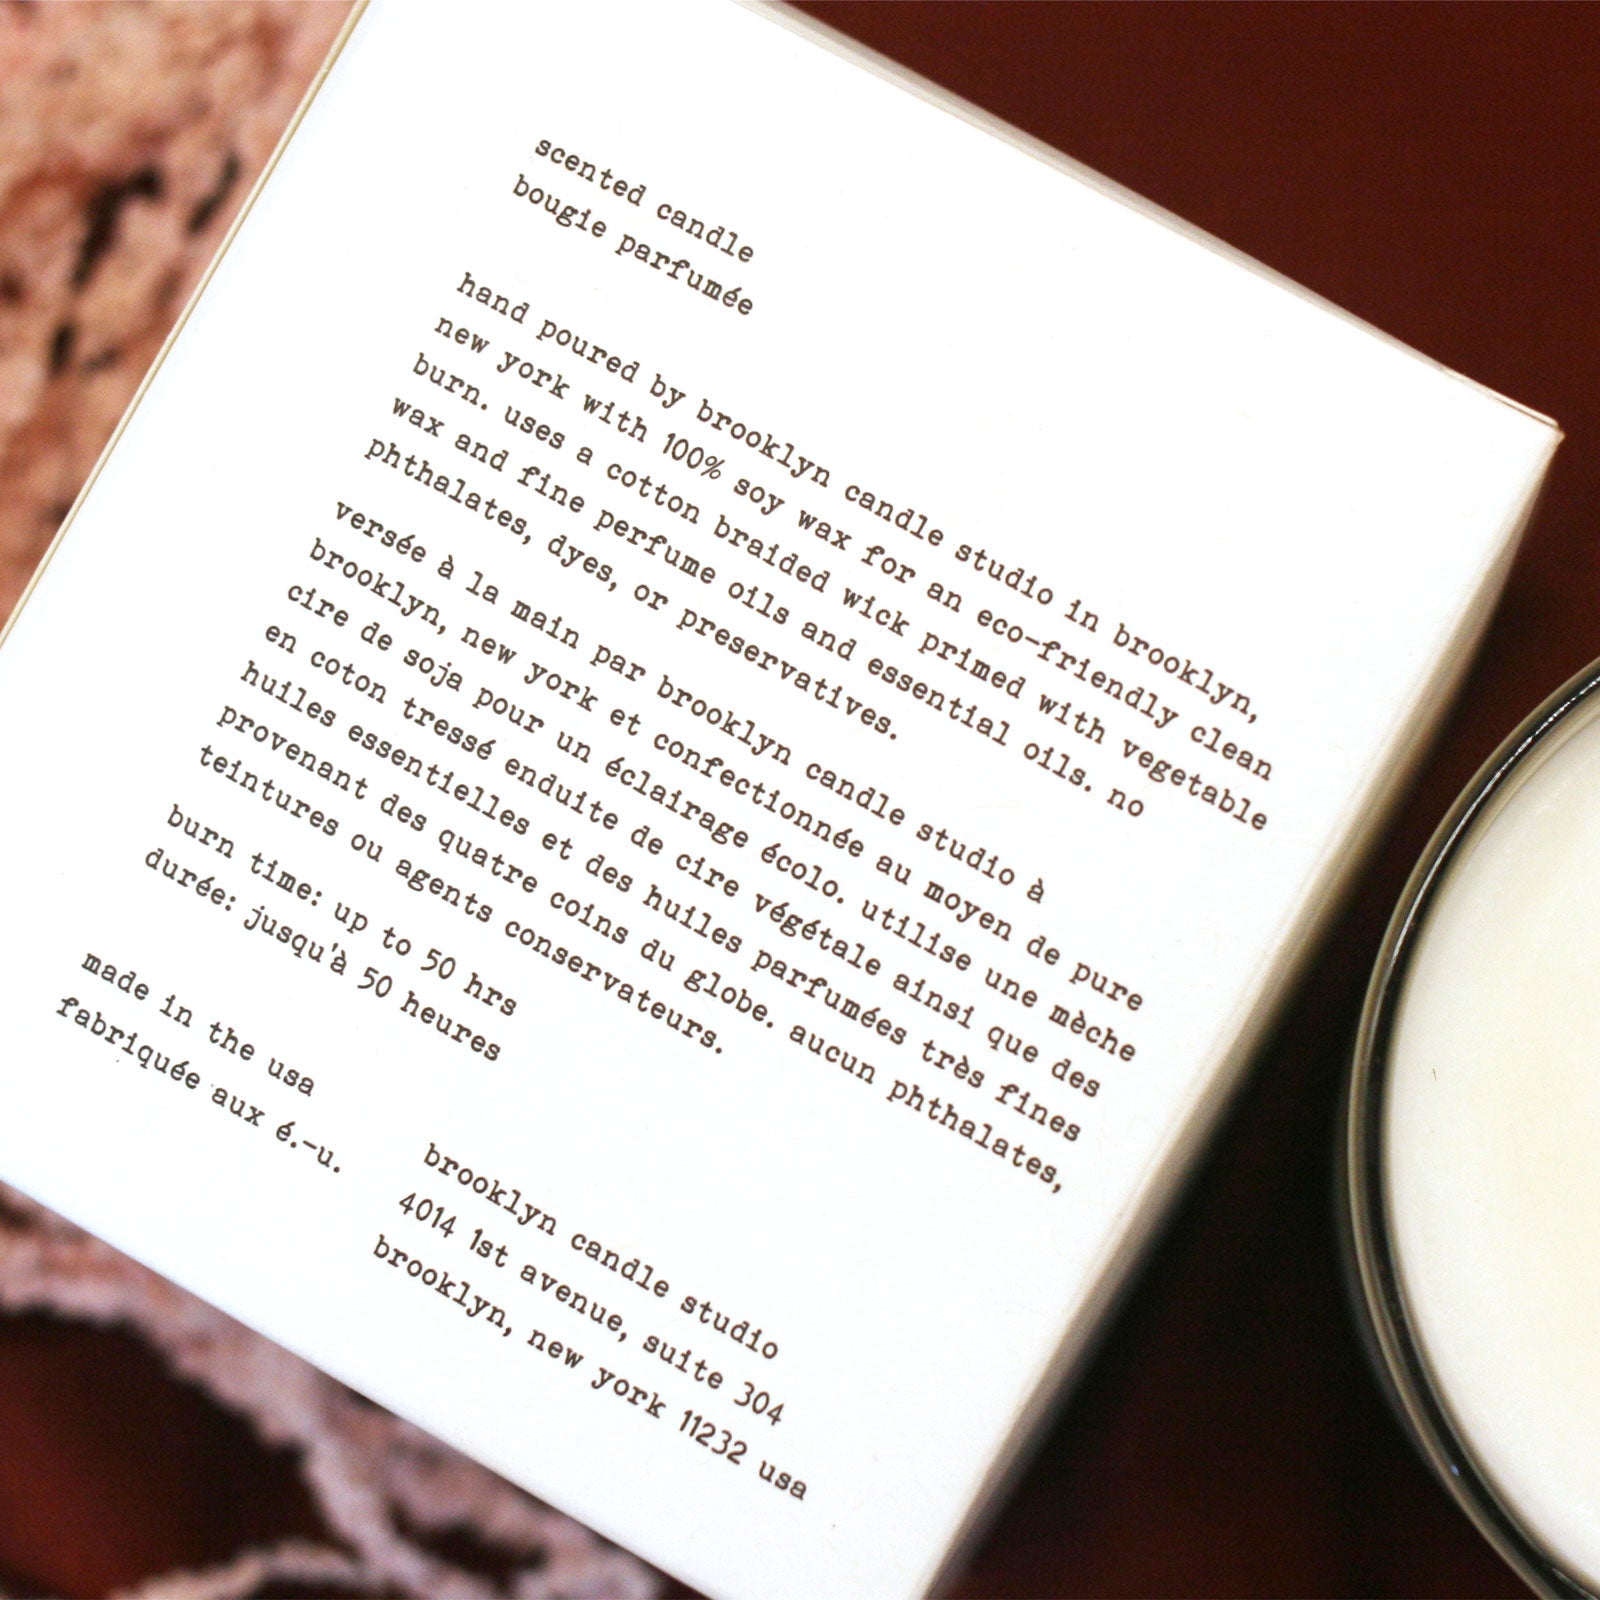 scented candle
bougie parfumée
hand poured by brooklyn candle studio in brooklyn,
new york with 100% soy wax for an eco-friendly clean
burn. uses a cotton braided wick primed with vegetable
wax and fine perfume oils and essential oils. no
phthalates, dyes, or preservatives.
versée à la main par brooklyn candle studio à
brooklyn, new york et confectionnée au moyen de pure
cire de soja pour un éclairage écolo. utilise une mèche
en coton tressé enduite de cire végétale ainsi que des
huiles essentielles et des huiles parfumées très fines
provenant des quatre coins du globe. aucun phthalates,
teintures ou agents conservateurs.
burn time: up to 50 hrs
durée: jusqu'à 50 heures
made in the usa
fabriquée aux é.-u.
brooklyn candle studio
4014 1st avenue, suite 304
brooklyn, new york 11232 usa